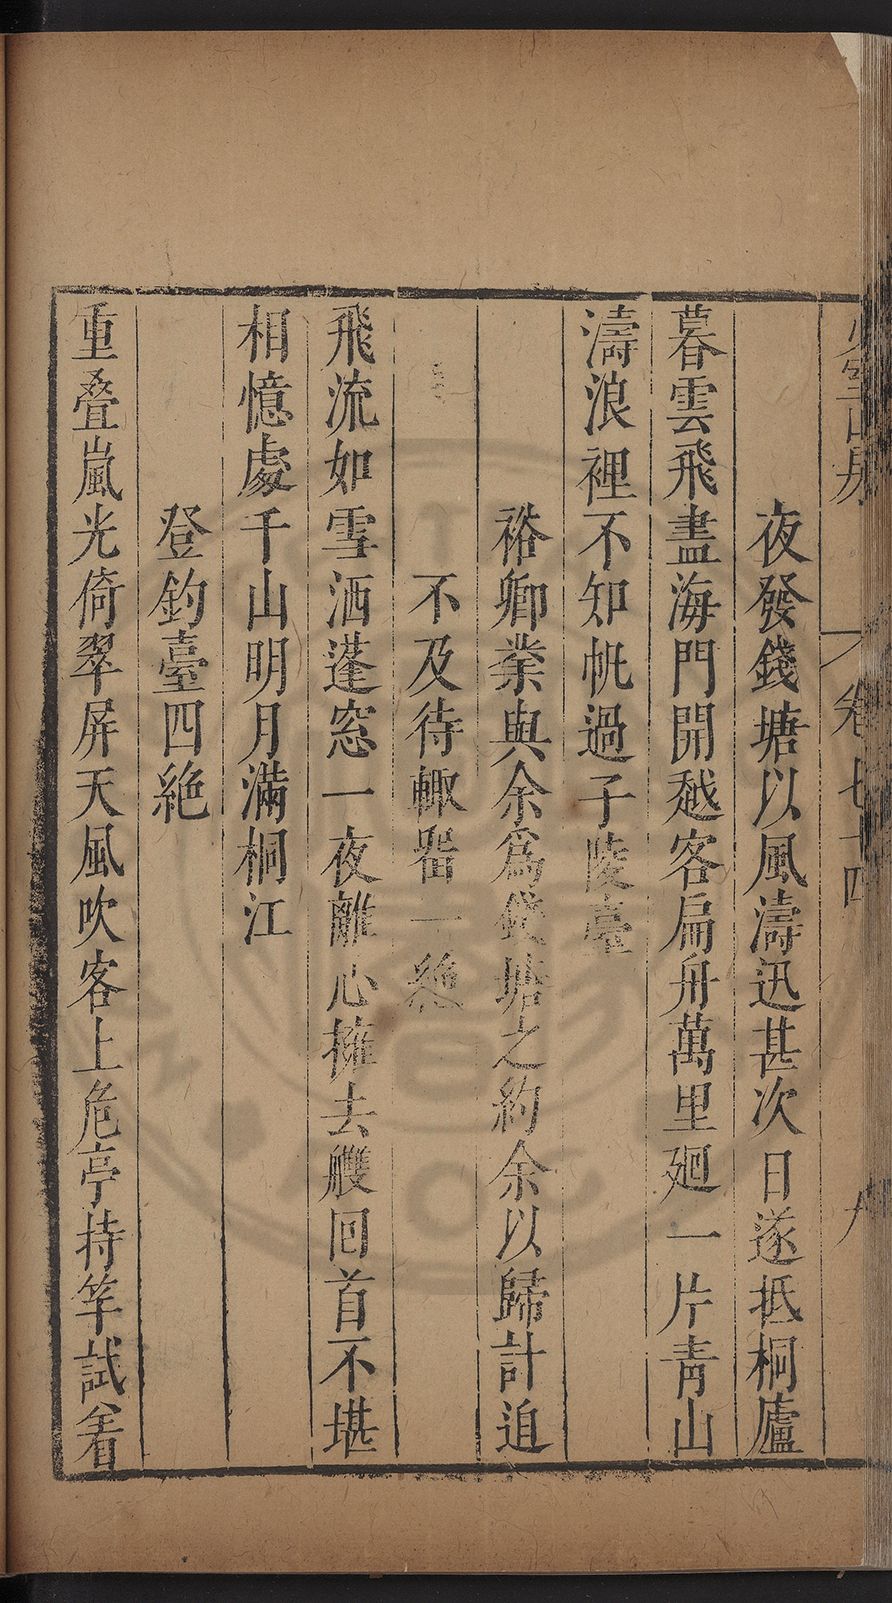 少室山房 卷七十四 九
夜發錢塘以風濤迅甚次日遂抵桐廬
暮雲飛盡海門開越客扁舟萬里廻一片青山
濤浪裡不知帆過子陵臺
裕卿業與余爲錢塘之約余以歸計迫
不及待輙畱一絶
飛流如雪洒蓬窓一夜離心擁去艭回首不堪
相憶處千山明月滿桐江
登釣臺四絶
重叠嵐光倚翠屏天風吹客上危亭持竿試看